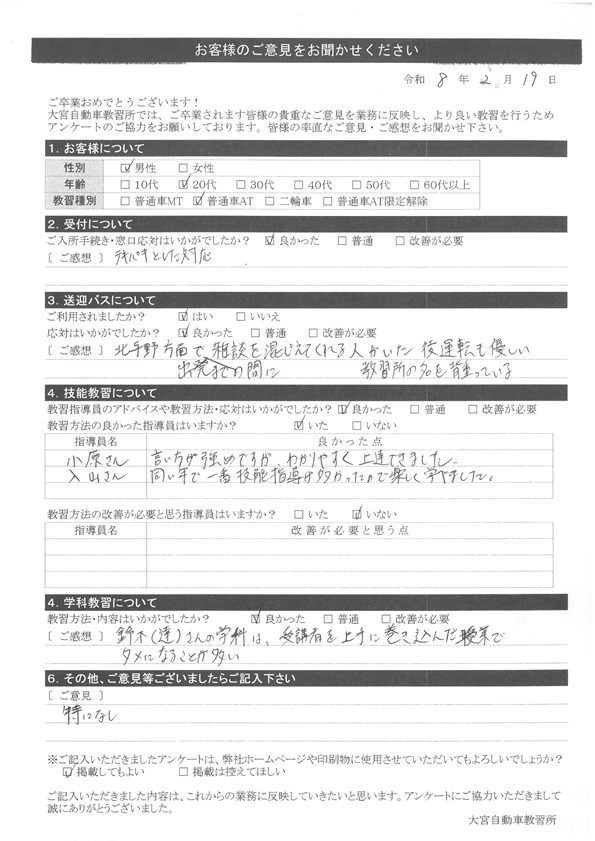 お客様のご意見をお聞かせください
令和 8 年 2 月 19 日
ご卒業おめでとうございます!
大宮自動車教習所では、ご卒業されます皆様の貴重なご意見を業務に反映し、より良い教習を行うため
アンケートのご協力をお願いしております。皆様の率直なご意見・ご感想をお聞かせ下さい。
1. お客様について
性別 ☑男性 □女性
年齢 □10代 ☑20代 □30代 □40代 □50代 □60代以上
教習種別 □普通車MT ☑普通車AT □二輪車 □普通車AT限定解除
2. 受付について
ご入所手続き・窓口応対はいかがでしたか? ☑良かった □普通 □改善が必要
[ ご感想 ] テキパキとした対応
3. 送迎バスについて
ご利用されましたか? ☑はい □いいえ
応対はいかがでしたか? ☑良かった □普通 □改善が必要
[ ご感想 ] 北手野方面で 雑談を混じえてくれる人がいた 後運転も優しい
出発までの間に 教習所の名を背負っている
4. 技能教習について
教習指導員のアドバイスや教習方法・応対はいかがでしたか? ☑良かった □普通 □改善が必要
教習方法の良かった指導員はいますか? ☑いた □いない
指導員名 良かった点
小原さん 言い方が強めですが、わかりやすく上達できました。
入山さん 同い年で一番技能指導が多かったので楽しく学べました。
教習方法の改善が必要と思う指導員はいますか? □いた ☑いない
指導員名 改善が必要と思う点
4. 学科教習について
教習方法・内容はいかがでしたか? ☑良かった □普通 □改善が必要
[ ご感想 ] 鈴木(達)さんの学科は、受講者を上手に巻き込んだ授業で
タメになることが多い
6. その他、ご意見等ございましたらご記入下さい
[ ご意見 ]
特になし
※ご記入いただきましたアンケートは、弊社ホームページや印刷物に使用させていただいてもよろしいでしょうか?
☑掲載してもよい □掲載は控えてほしい
ご記入いただきました内容は、これからの業務に反映していきたいと思います。アンケートにご協力いただきまして
誠にありがとうございました。
大宮自動車教習所